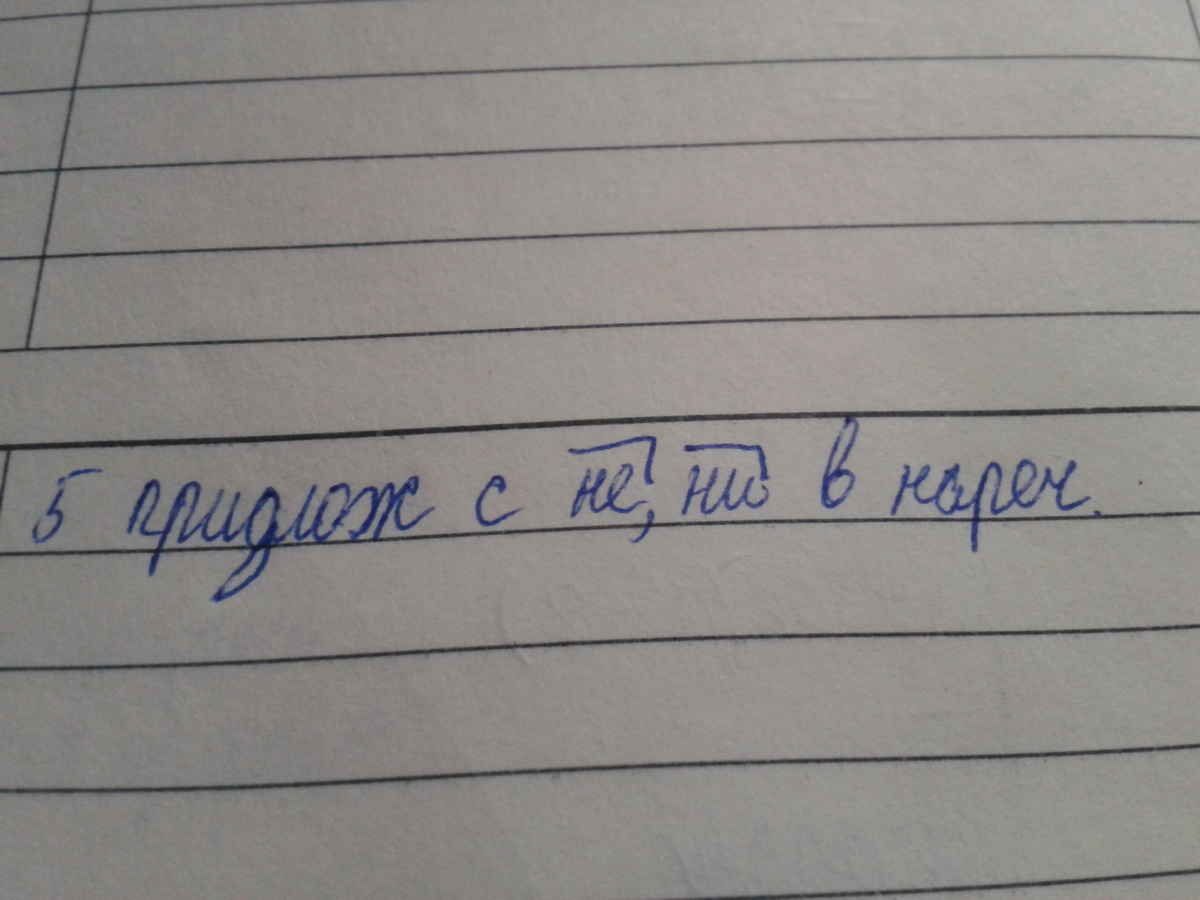 5 придлож с не, ни в нареч.